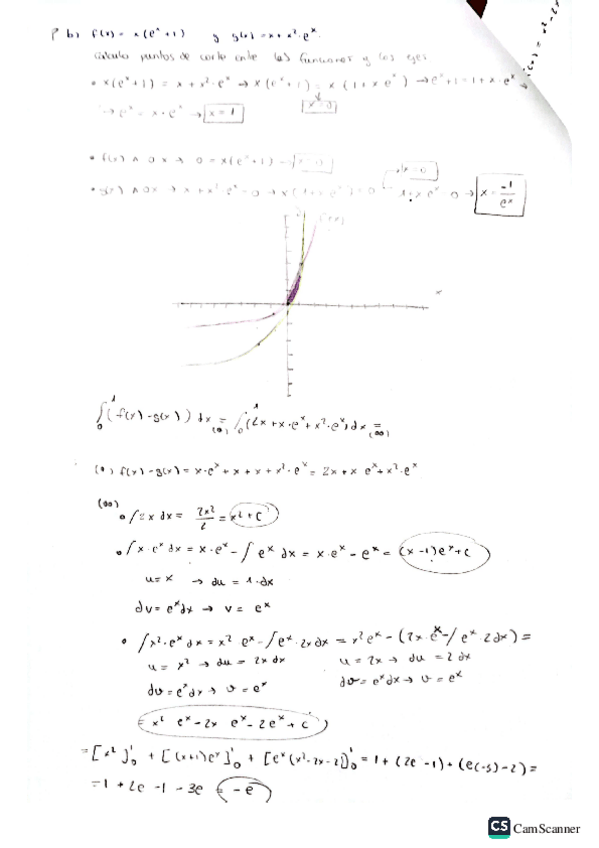 b) f(x) = x(eˣ+1) y g(x) = x+x²·eˣ.
Cálculo puntos de corte entre las funciones y los ejes
• x(eˣ+1) = x+x²·eˣ → x(eˣ+1) = x(1+xeˣ) → eˣ+1 = 1+x·eˣ →
→ eˣ = x·eˣ → x=1 x=0
• f(x) ∧ OX → 0 = x(eˣ+1) → x=0
• g(x) ∧ OX → x+x²eˣ=0 → x(1+xeˣ)=0 x=0 1+xeˣ=0 → x = -1/eˣ
f(x)
x
∫₀¹ (f(x)-g(x)) dx =(o) ∫₀¹ (2x+x·eˣ+x²·eˣ) dx =(oo)
(o) f(x)-g(x) = x·eˣ+x+x+x²·eˣ = 2x+x eˣ+x²·eˣ
(oo)
• ∫2x dx = 2x²/2 = x²+C
• ∫x·eˣ dx = x·eˣ - ∫eˣ dx = x·eˣ - eˣ = (x-1)eˣ+C
u=x → du = 1·dx
dv = eˣdx → v = eˣ
• ∫x²·eˣ dx = x² eˣ - ∫eˣ·2x dx = x²eˣ - (2x·eˣ - ∫eˣ·2dx) =
u = x² → du = 2x dx u = 2x → du = 2 dx
dv = eˣdx → v = eˣ dv = eˣdx → v = eˣ
= x² eˣ - 2x eˣ - 2eˣ + C
= [x²]₀¹ + [(x+1)eˣ]₀¹ + [eˣ(x²-2x-2)]₀¹ = 1 + (2e-1) + (e(-3)-2) =
= 1 + 2e - 1 - 3e = -e
CS CamScanner